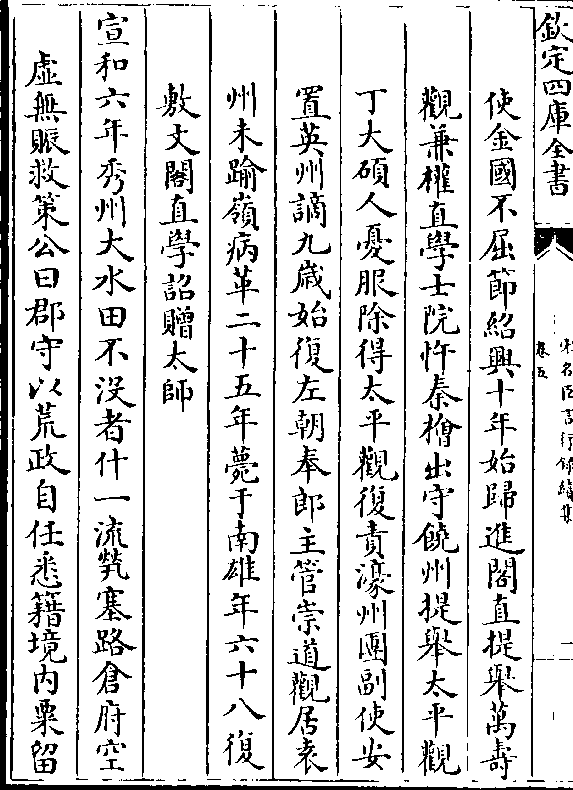 欽定四庫全書
宋名臣言行錄續集
卷五
使金國不屈節紹興十年始歸進閣直提舉萬壽
觀兼權直學士院忤秦檜出守饒州提舉太平觀
丁大碩人憂服除得太平觀復責濠州團副使安
置英州謫九歲始復左朝奉郎主管崇道觀居袁
州未踰嶺病革二十五年薨于南雄年六十八復
敷文閣直學詔贈太師
宣和六年秀州大水田不没者什一流㷀塞路倉府空
虛無賑救策公曰郡守以荒政自任悉籍境内粟留